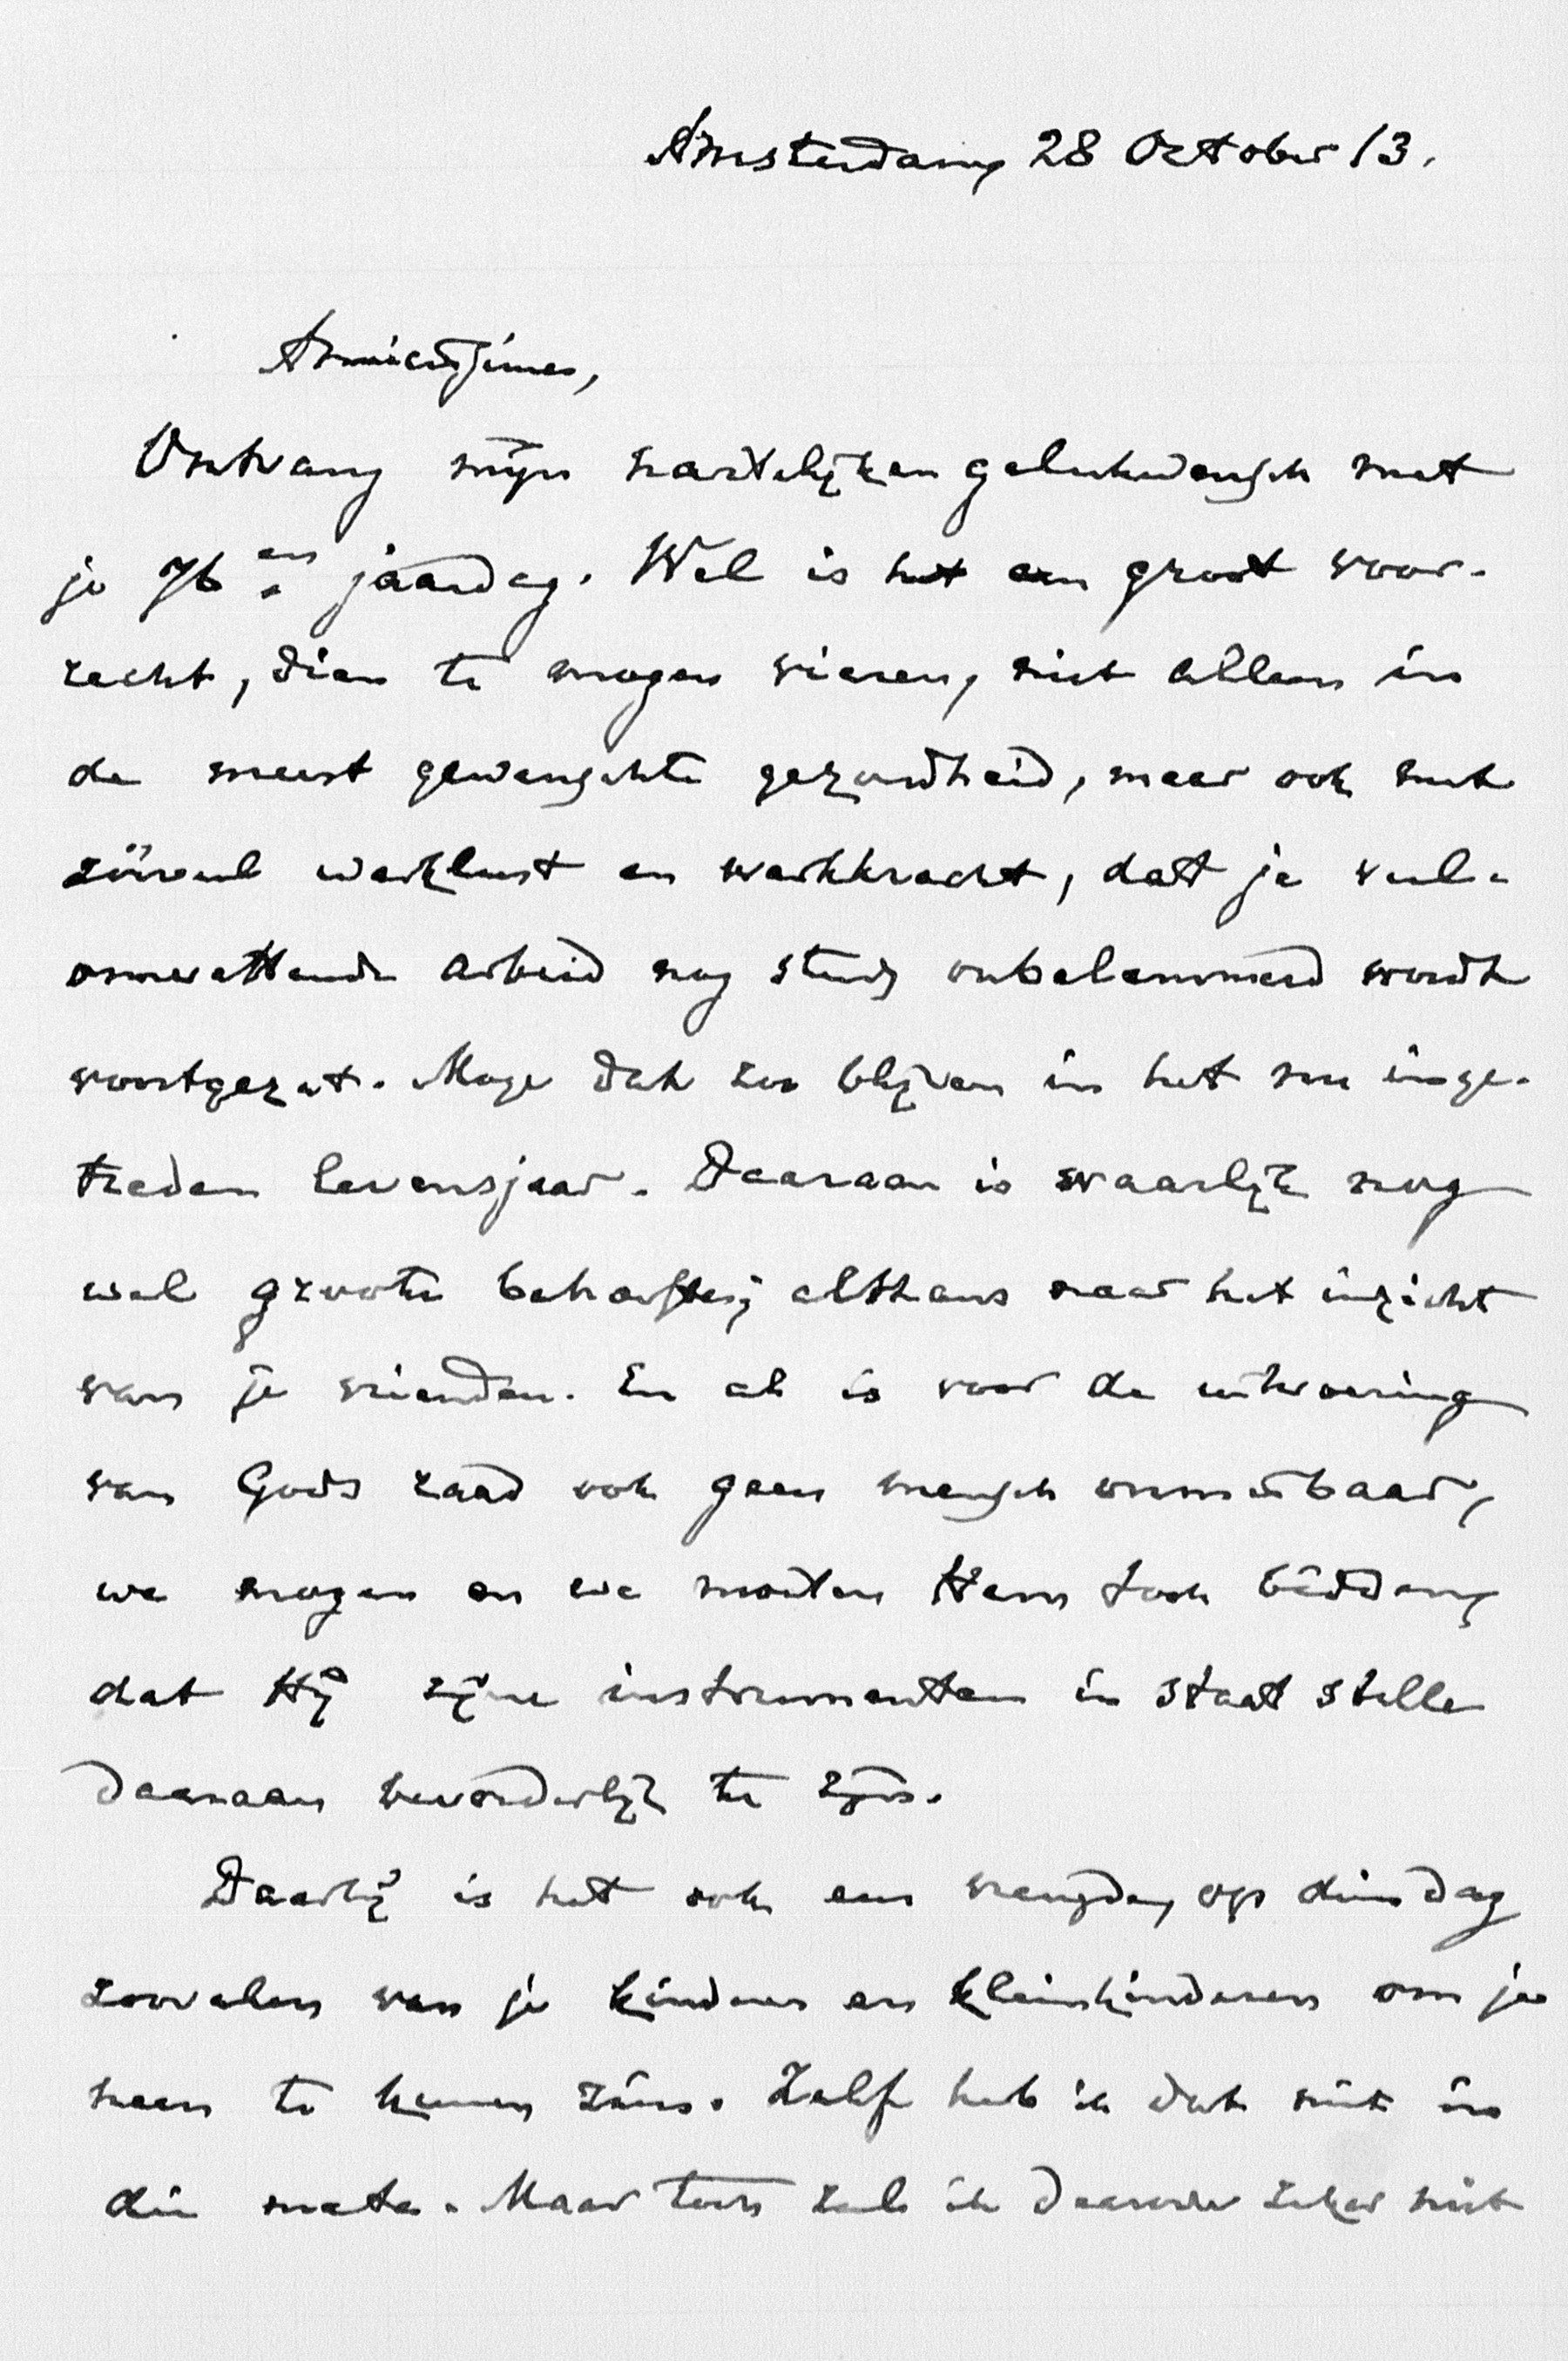 Amsterdam, 28 October 13.
Amicissime,
Ontvang mijn hartelijken gelukwensch met
je 76en jaardag. Wel is het een groot voor-
recht, dien te mogen vieren, niet alleen in
de meest gewenschte gezondheid, maar ook met
zóóveel werklust en werkkracht, dat je veel-
omvattende arbeid nog steeds onbelemmerd wordt
voortgezet. Moge dat zoo blijven in het nu inge-
treden levensjaar. Daaraan is waarlijk nog
wel groote behoefte, althans naar het inzicht
van je vrienden. En al is voor de uitvoering
van Gods raad ook geen mensch onmisbaar,
we mogen en we moeten Hem toch bidden,
dat Hij zijne instrumenten in staat stelle
daaraan bevorderlijk te zijn.
Daarbij is het ook een vreugde, op dien dag
zoovelen van je kinderen en kleinkinderen om je
heen te kunnen zien. Zelf heb ik dat niet in
die mate. Maar toch zal ik daarover zeker niet